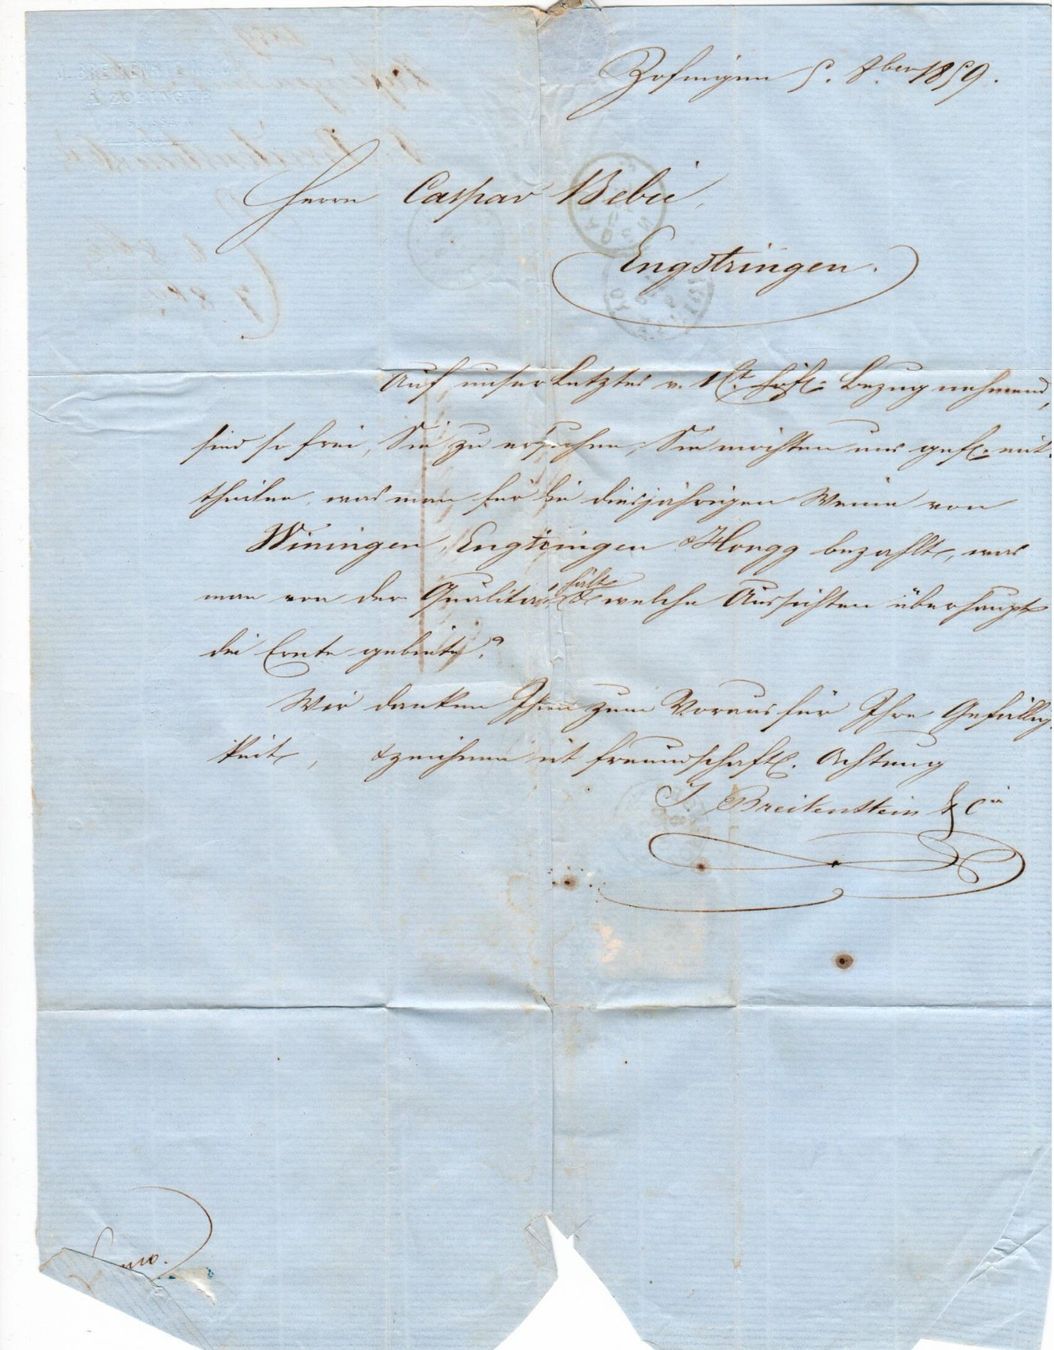 Zofingen 5. 8ber 1859.
Herrn Caspar Bebié,
Engstringen.
Auf unser Letztes v. höfl. Bezug nehmend,
sind so frei, Sie zu ersuchen, Sie möchten uns gefl. mit-
theilen, was man für die diesjährigen Weine von
Winingen, Engstringen & Hongg bezahlt, was
man von der Qualität hält & welche Aussichten überhaupt
die Ernte gebietet?
Wir danken Ihnen zum Voraus für Ihre Gefällig-
keit, & zeichnen mit freundschaftl. Achtung
J. Breitenstein & Cie